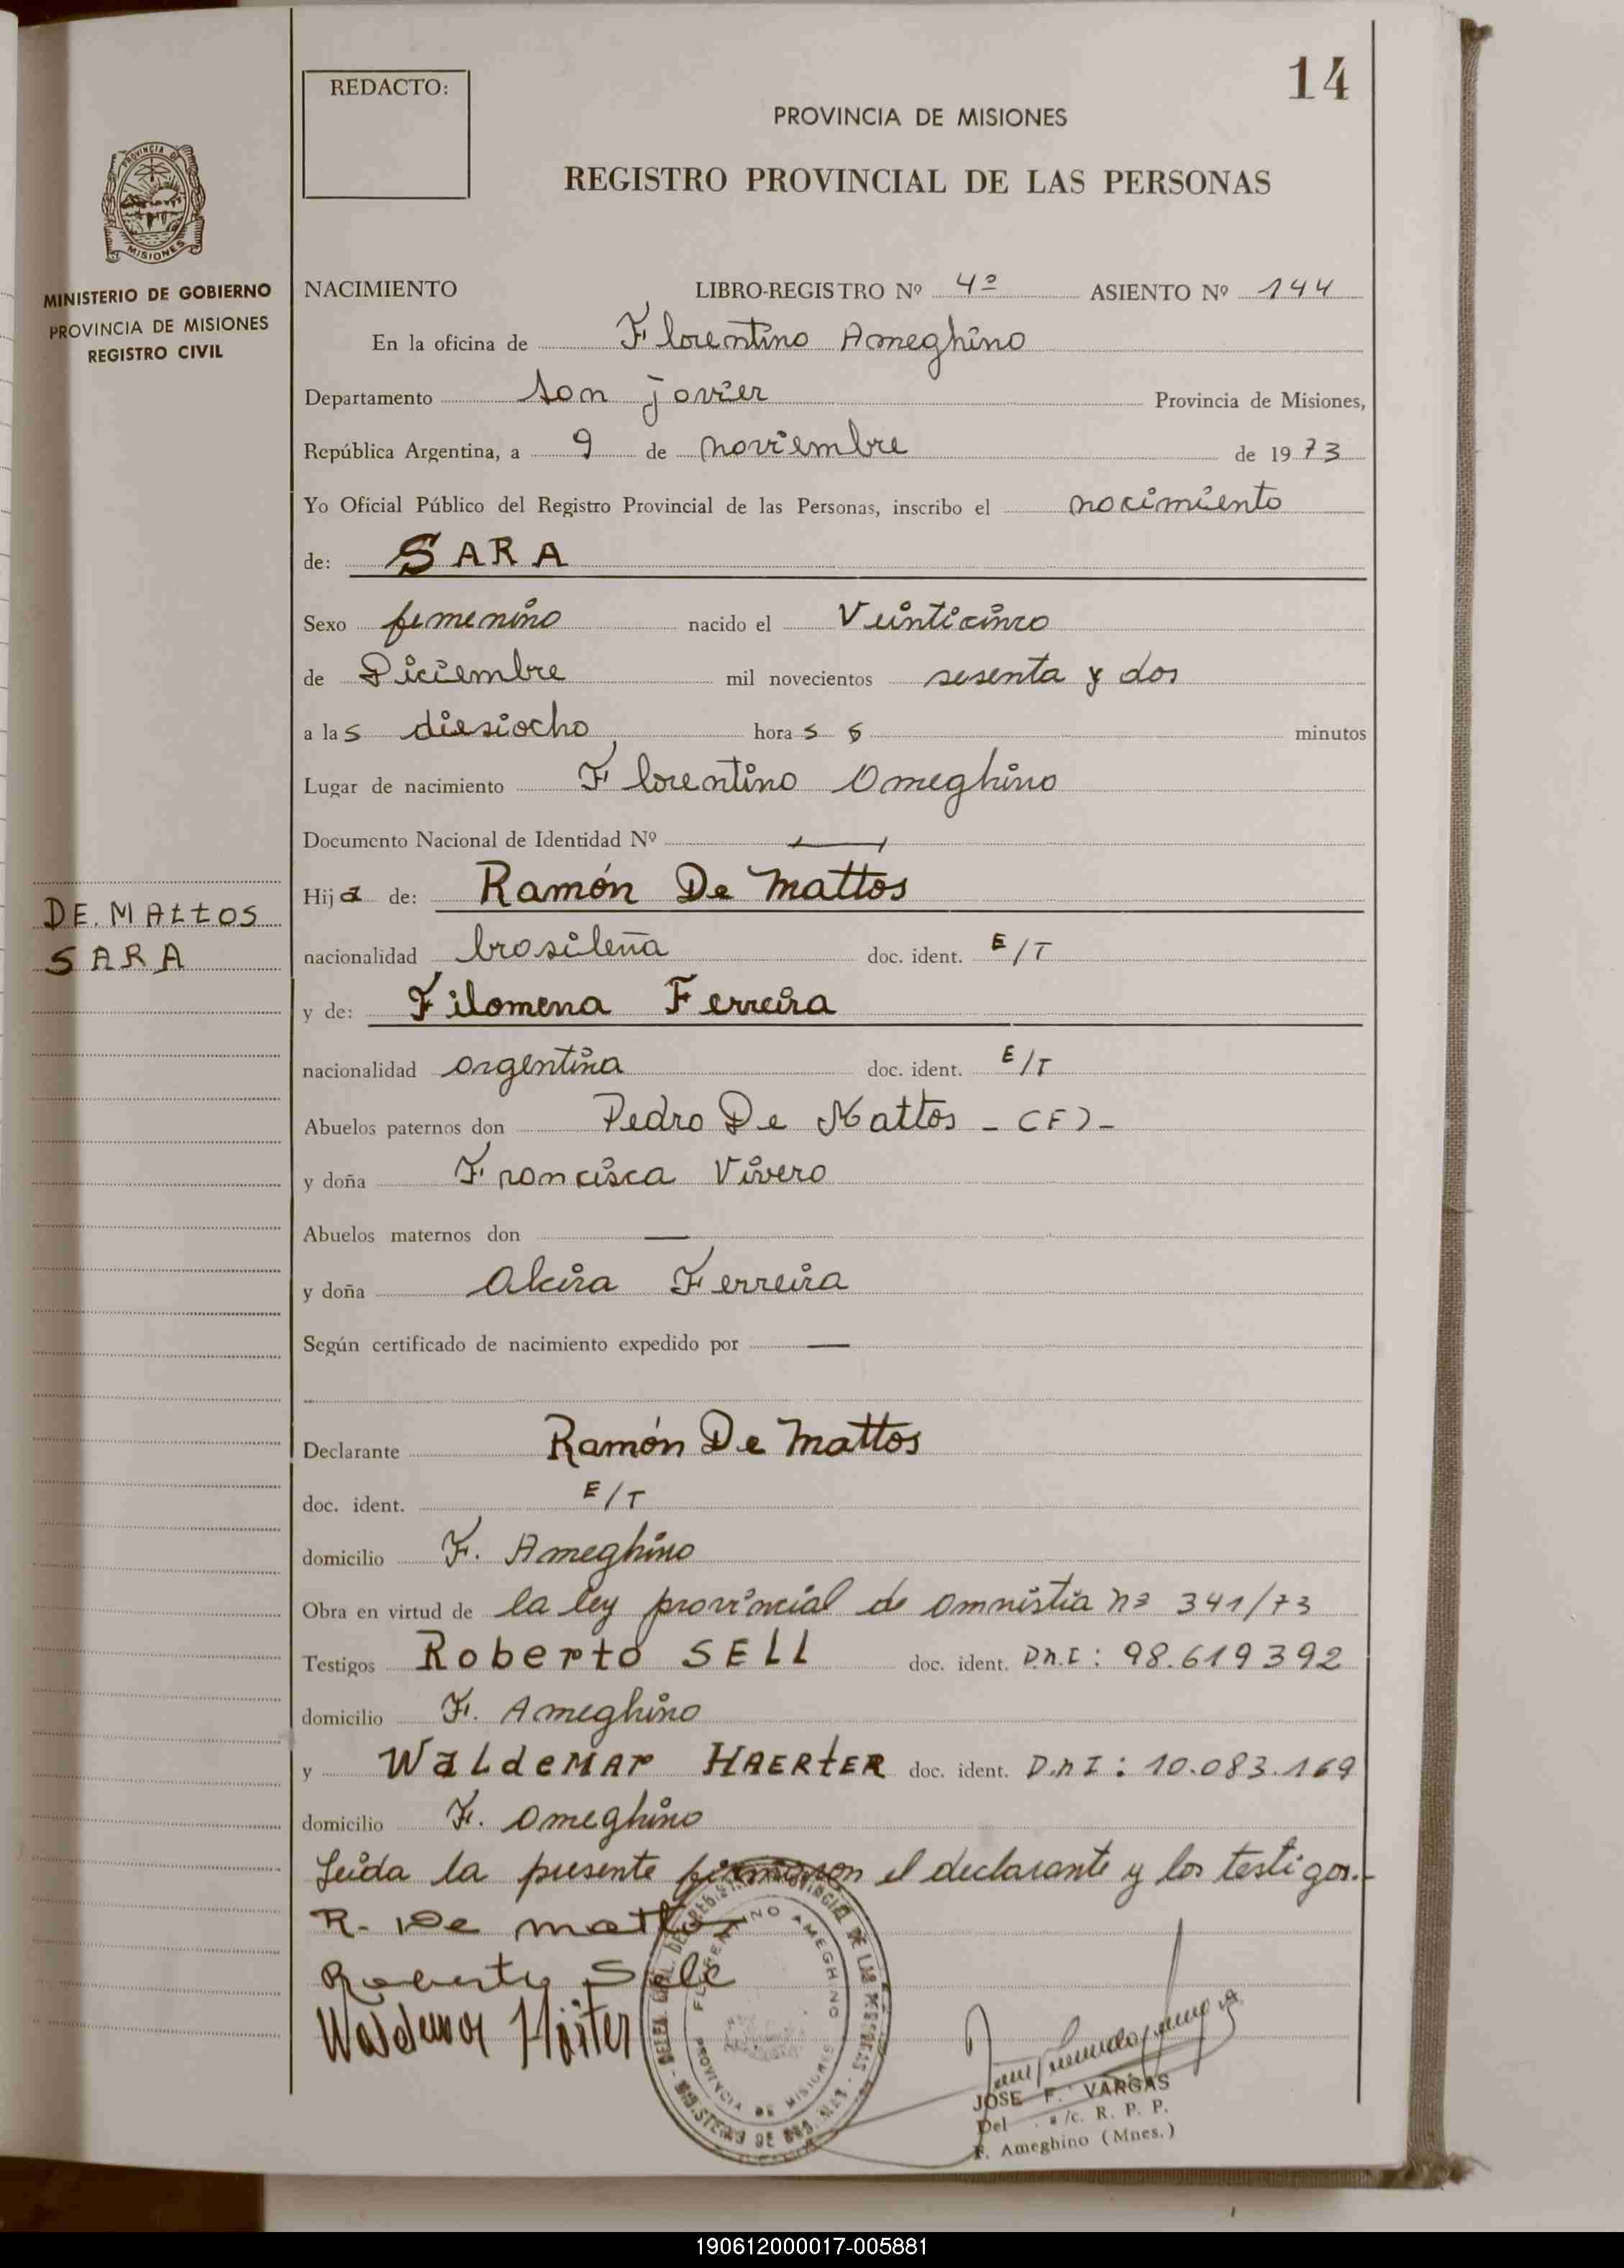 14
REDACTO:
PROVINCIA DE MISIONES
REGISTRO PROVINCIAL DE LAS PERSONAS
PROVINCIA DE
MISIONES
MINISTERIO DE GOBIERNO
PROVINCIA DE MISIONES
REGISTRO CIVIL
NACIMIENTO LIBRO-REGISTRO Nº 4º ASIENTO Nº 144
En la oficina de Florentino Ameghino
Departamento san javier Provincia de Misiones,
República Argentina, a 9 de noviembre de 1973
Yo Oficial Público del Registro Provincial de las Personas, inscribo el nacimiento
de: SARA
Sexo femenino nacido el Veinticinco
de Diciembre mil novecientos sesenta y dos
a las diesiocho horas minutos
Lugar de nacimiento Florentino Ameghino
Documento Nacional de Identidad Nº —
Hija de: Ramón De Mattos
DE MATTOS
SARA
nacionalidad brasileña doc. ident. E/T
y de: Filomena Ferreira
nacionalidad argentina doc. ident. E/T
Abuelos paternos don Pedro De Mattos - (F) -
y doña Francisca Vivero
Abuelos maternos don —
y doña Alcira Ferreira
Según certificado de nacimiento expedido por —
Declarante Ramón De Mattos
doc. ident. E/T
domicilio F. Ameghino
Obra en virtud de la ley provincial de amnistia nº 341/73
Testigos Roberto SELL doc. ident. D.N.I: 98.619392
domicilio F. Ameghino
y WALdeMAr HAERtER doc. ident. D.N I: 10.083.169
domicilio F. Ameghino
Leida la presente firmaron el declarante y los testigos.-
R. De mattos
Waldemar Härter
FLORENTINO AMEGHINO
PROVINCIA DE MISIONES
JOSE F. VARGAS
Del a/c. R. P. P.
F. Ameghino (Mnes.)
190612000017-005881